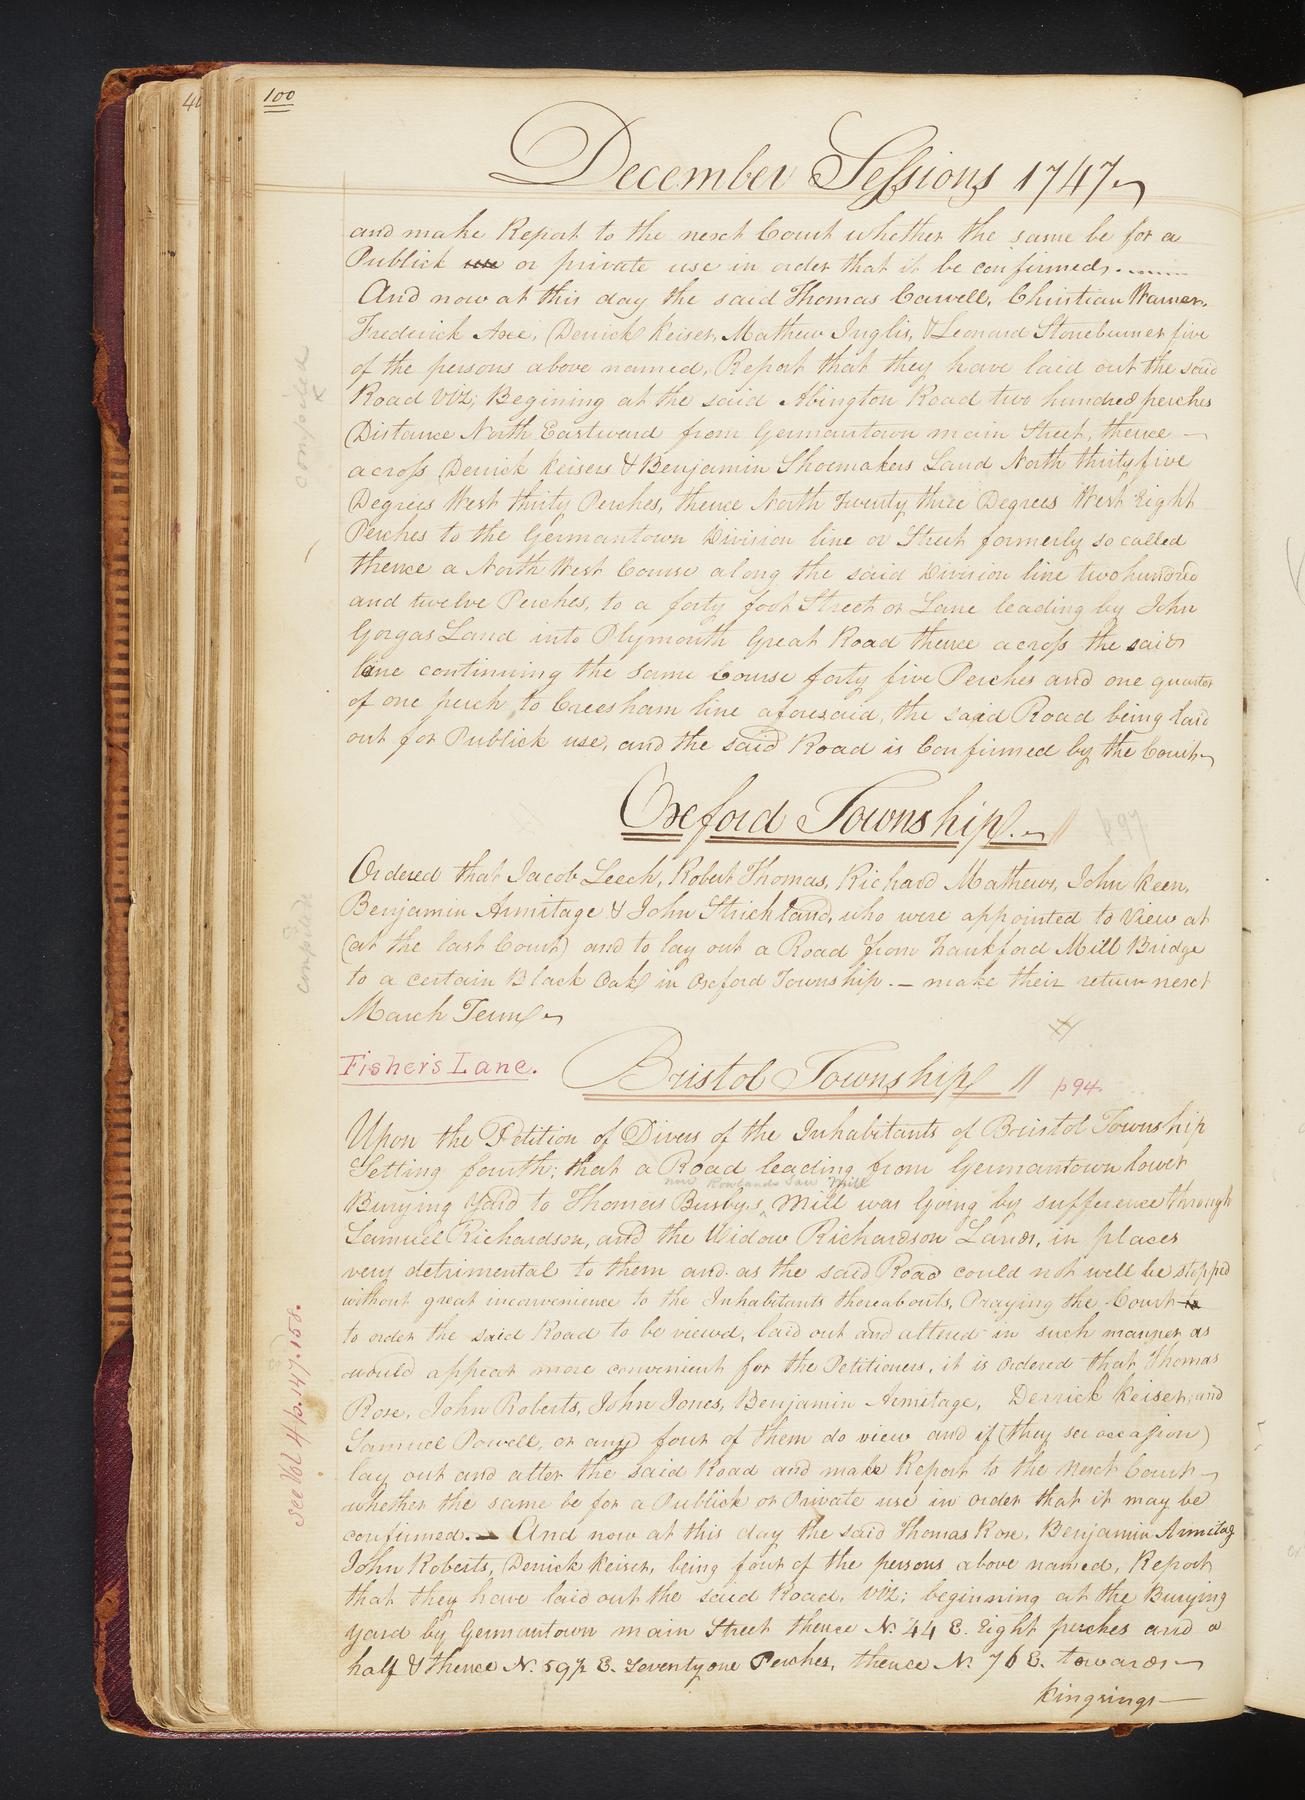 100
December Sessions 1747
and make Report to the next Court whether the same be for a
Publick use or private use in order that it be confirmed.
And now at this day the said Thomas Cawell, Christian Warner,
Frederick Axe, Derrick Keiser, Mathew Inglis, & Leonard Stoneburner five
of the persons above named, Report that they have laid out the said
Road viz; Begining at the said Abington Road two hundred perches
Distance North Eastward from Germantown main Street, thence —
across Derrick Keisers & Benjamin Shoemakers Land North thirty five
Degrees West thirty Perches, thence North Twenty three Degrees West Eight
Perches to the Germantown Division line or Street formerly so called
thence a North West Course along the said Division line two hundred
and twelve Perches, to a forty foot Street or Lane leading by John
Gorgas Land into Plymouth Great Road thence across the said
line continuing the same Course forty five Perches and one quarter
of one perch to Creesham line aforesaid, the said Road being laid
out for Publick use, and the said Road is Confirmed by the Court
compiled
Oxford Township. p 97
Ordered that Jacob Leech, Robert Thomas, Richard Mathews, John Keen,
Benjamin Armitage & John Strickland, who were appointed to View at
(at the last Court) and to lay out a Road from Frankford Mill Bridge
to a certain Black Oak in Oxford Township. — make their return next
March Term
compiled
Fisher's Lane.
Bristol Township // p 94.
Upon the Petition of Divers of the Inhabitants of Bristol Township
Setting fourth; that a Road leading from Germantown lower
now Rowlands Saw Mill
Burying Yard to Thomas Busbys, Mill was Going by sufference through
Samuel Richardson, and the Widow Richardson Lands, in places
very detrimental to them and as the said Road could not well be stopped
without great inconvenience to the Inhabitants thereabouts, Praying the Court to
to order the said Road to be viewd, laid out and altered in such manner as
would appear more convenient for the Petitioners, it is ordered that Thomas
Rose, John Roberts, John Jones, Benjamin Armitage, Derrick Keiser, and
Samuel Powell, or any four of them do view and if (they see occasion)
lay out and alter the said Road and make Report to the next Court —
whether the same be for a Publick or Private use in order that it may be
confirmed. — And now at this day the said Thomas Rose, Benjamin Armitag
John Roberts, Derrick Keiser, being four of the persons above named, Report
that they have laid out the said Road, viz; beginning at the Burying
yard by Germantown main Street thence N. 44 E. Eight perches and a
half & thence N. 59½ E. Seventy one Perches, thence N. 76 E. towards —
Kingsings —
See Vol 4 p. 147. 158.